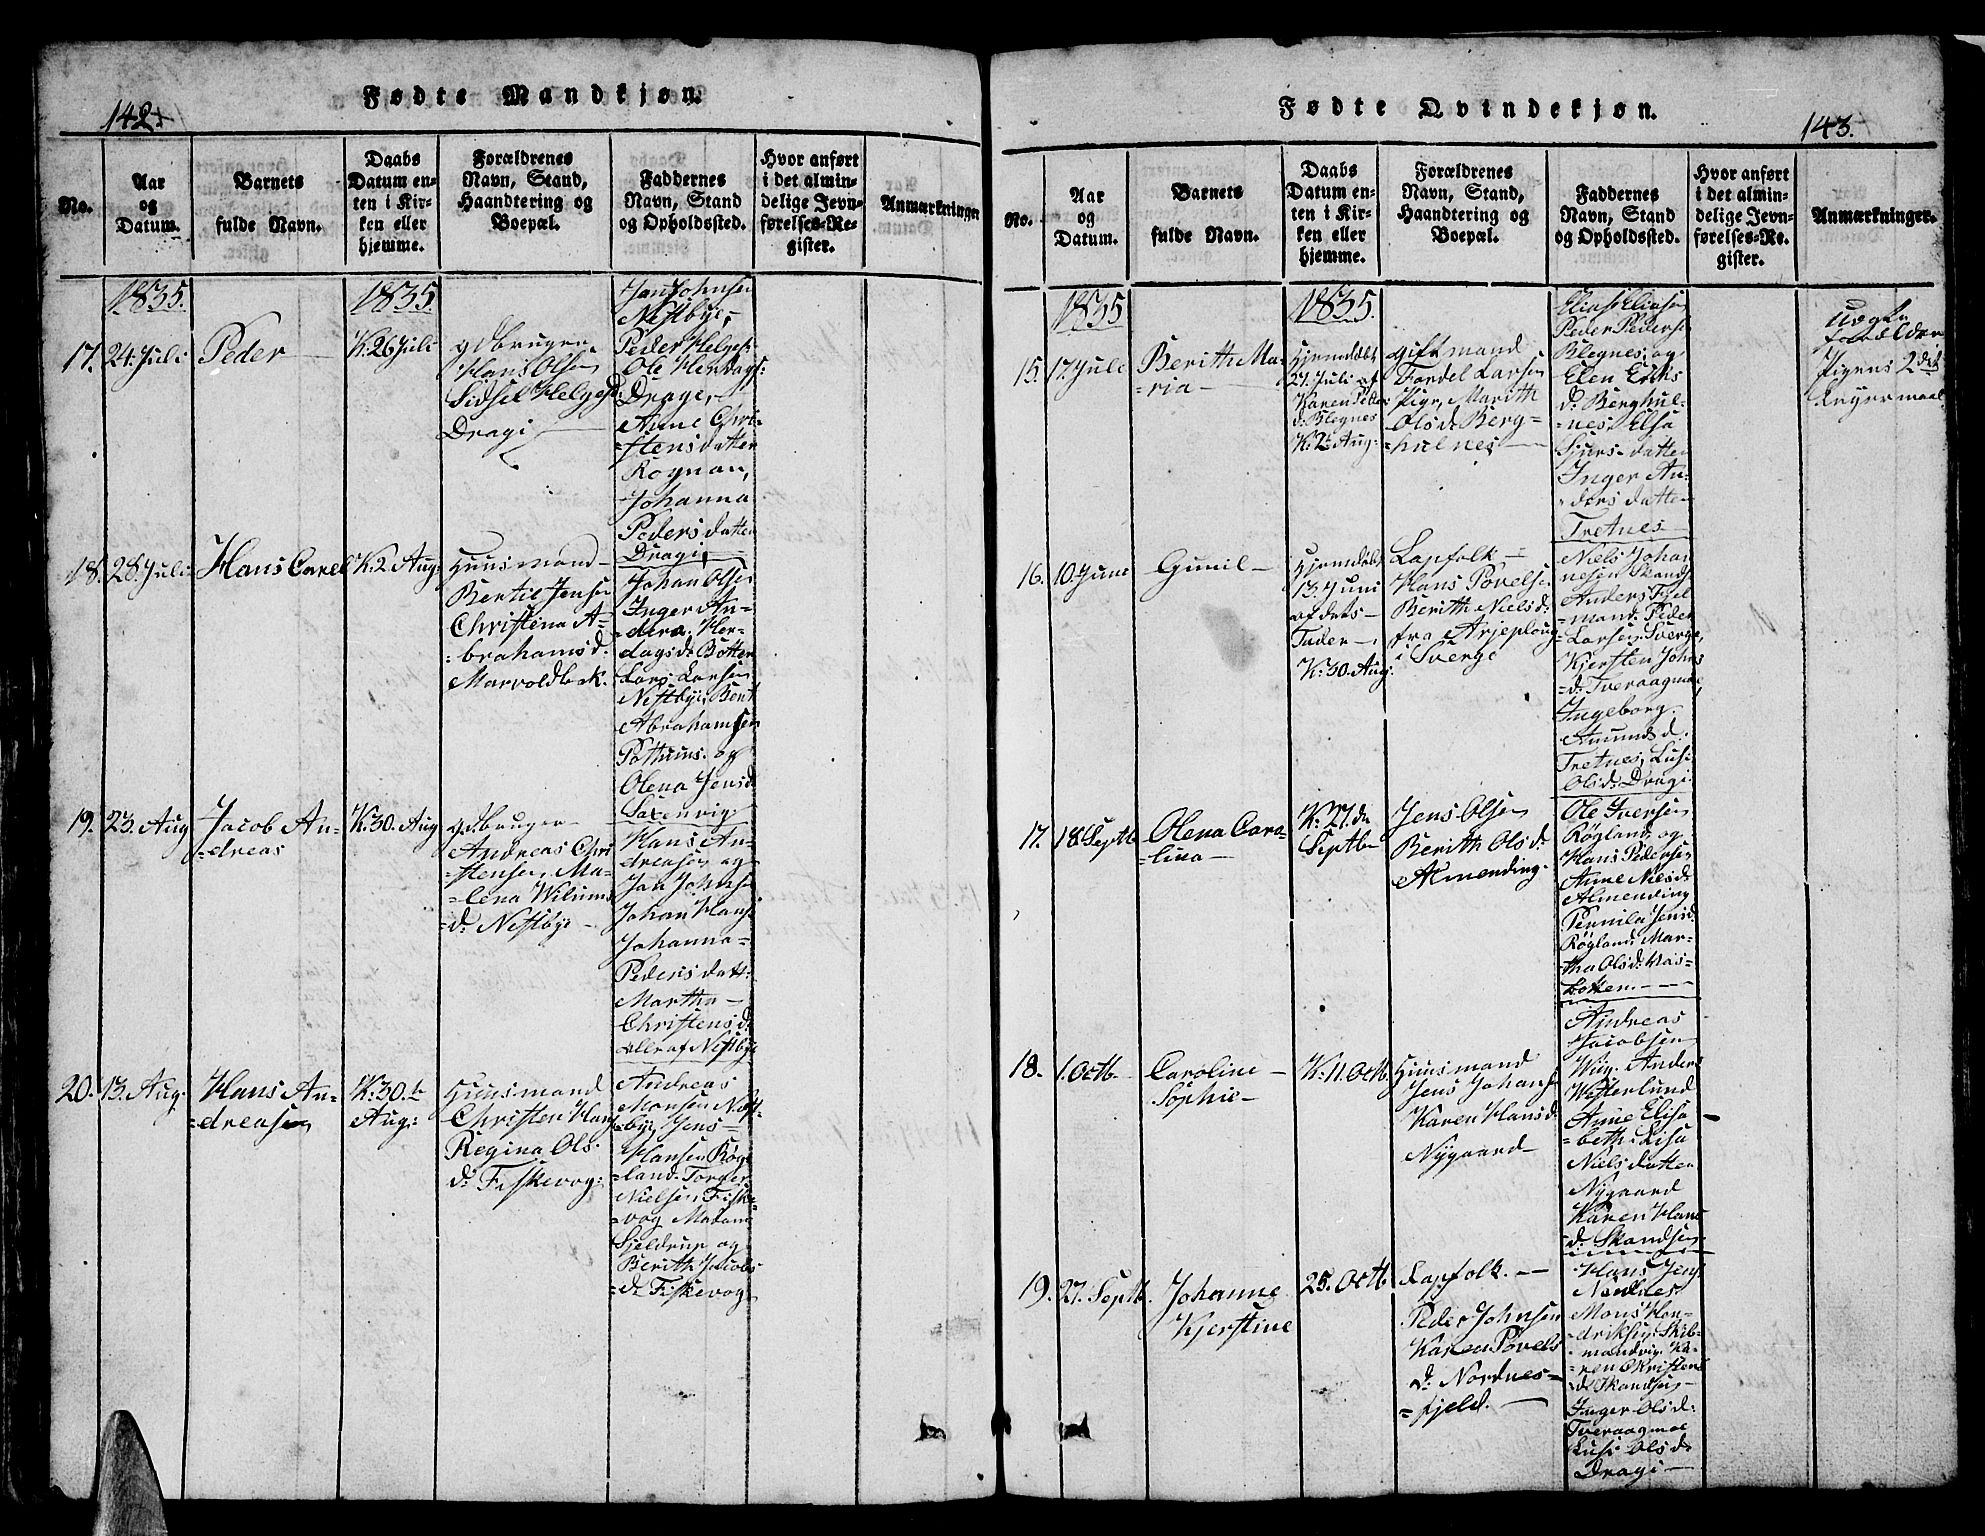 142
Fødte Mandkjøn.
No.
Aar
og
Datum.
Barnets
fulde Navn.
Daabs
Datum en-
ten i Kir-
ken eller
hjemme.
Forældrenes
Navn, Stand,
Haandtering og
Boepæl.
Faddernes
Navn, Stand
og Opholdssted.
Hvor anført
i det almin-
delige Jevn-
førelses-Re-
gister.
Anmærkninger
1835.
1835.
17.
24. Juli
Peder
K: 26 Juli
gdbruger
Hans Olsen
Sidsel Helgesd:
Dragi
Jan Johnsen
Nestbye,
Peder Helges:
Ole Herdags:
Drage,
Anne Chri-
stensdatter
Rognan,
Johanna
Pedersdatter
Dragi,
18.
28. Juli
Hans Carel
K: 2 Aug:
Huusmand
Bertil Jensen
Christena A-
=brahamsd.
Marvoldbek.
Johan Olsen
Inger An-
=dersd. Her-
dagsd: Botten
Lars Larsen
Nestbye, Bent
Abrahamsen
Pothuus. og
Olena Jensd:
Saxenvig
19.
23. Aug
Jacob An-
=dreas
K: 30. Aug
gdbruger
Andreas Chri
=stensen, Ma-
=lena Wilums
d: Nestbye
Hans An-
dreasen og
Jan Johns:
Johan Hans:
Johanna
Pedersdatt:
Martha
Christensd:
alle af Nestbye
20.
13. Aug.
Hans An-
=dreasen
K: 30.te
Aug:
Huusmand
Christen Hans
Regina Ols
d: Fiskevog:
Andreas
Monsen Nest-
=bye, Jens
Hansen Røg-
land. Torger
Nielsen Fiske-
=vog Madam
Sjeldrup og
Berith Jacobs
=d: Fiskevog
Fødte Qvindekjøn.
143.
No.
Aar
og
Datum.
Barnets
fulde Navn.
Daabs
Datum en-
ten i Kir-
ken eller
hjemme.
Forældrenes
Navn, Stand,
Haandtering og
Boepæl.
Faddernes
Navn, Stand
og Opholdssted.
Hvor anført
i det almin-
delige Jevn-
førelses-Re-
gister.
Anmærkninger.
1835
1835.
15.
17. Juli
Berith Ma-
=ria
Hjemdøbt
27. Juli af
Karen Peder
d: Blegnes
K. 2t Aug:
gift mand
Tordel Larsen
Pige, Marith
Olsd: Berg-
=hulnes
Elias Eliasen
Peder Pedersen
Blegnes, og
Elen Eriks
d: Berghul-
=nes, Elsa
Sjursdatter
Inger An-
=dersdatter
Tretnes
Uægte
forældre
Pigens 2det
Leyermaal
16.
10. Juni
Gunil
Hjemdøbt
13. Juni
af dets
Fader
K: 30. Aug.
Lapfolk
Hans Povelsen
Berith Nielsd:
fra Arjeploug
i Sverge
Niels Johan
nesen Skands
Anders Fjel
mand. Peder
Larsen Sverge,
Kjersten Johns
=d: Tveraagmoe,
Ingeborg
Amundsd.
Tretnes, Lusi
Olsd: Dragi
17.
18. Septb
Olena Caro-
=lina
K: 27. de
Septb
Jens Olsen
Berith Olsd:
Almending.
Ole Iversen
Røgland og
Hans Pedersen
Anne Nielsd:
Almending
Pernila Jensd:
Røgland. Mar-
tha Olsd: Vas-
botten.
18.
1. Octb
Caroline
Sophie
K: 11. Octb
Huusmand
Jens Johans:
Karen Hansd:
Nygaard
Andreas
Jacobsen
Wiig. Anders
Westerlund
Anne Elisa
beth: Lisa
Nielsdatter
Nygaard
Karen Hans
d: Skandsen
19.
27. Septb.
Johanne
Kjerstine
25. Octb
Lapfolk.
Peder Johnsen
Karen Povels
d: Nordnes-
=fjeld.
Hans Jens:
Nordnes
Mons Hen-
=driksen Skib-
mandvig. Ka-
=ren Christens
d: Skandsen
Inger Olsd:
Tveraagmoe
Lusi Olsd:
Dragi